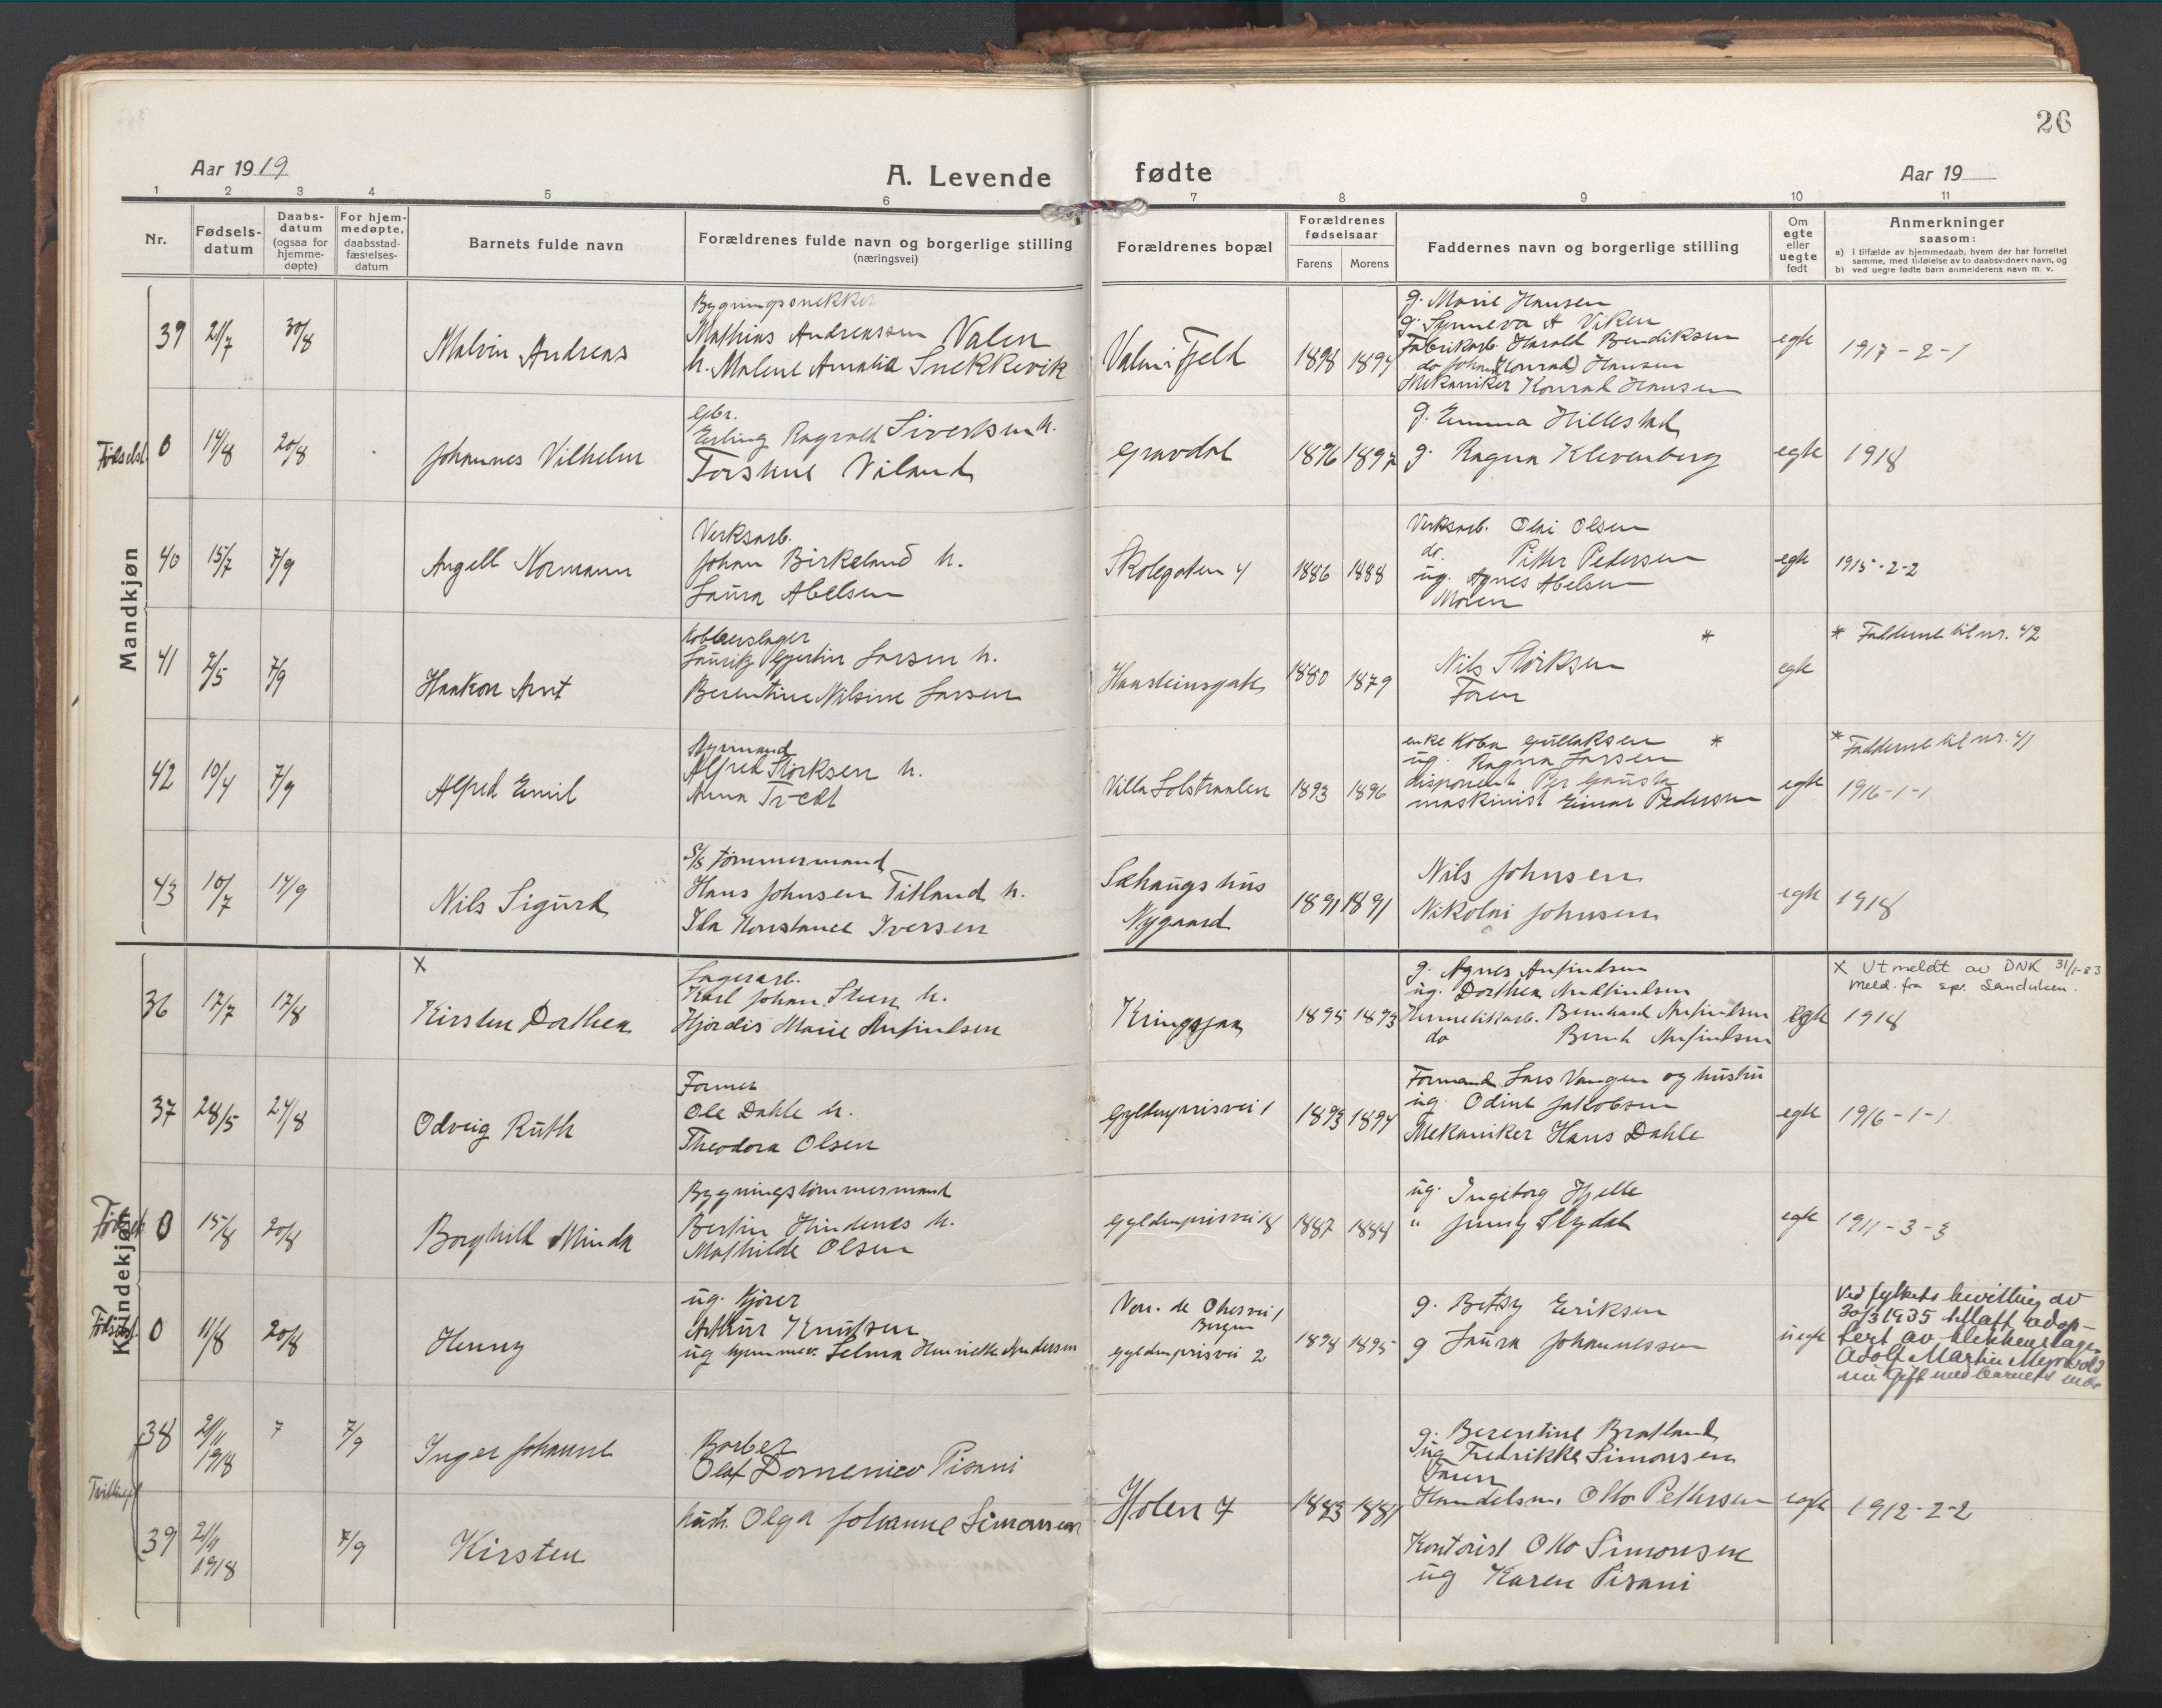 26
Aar 1919
A. Levende fødte
Aar 19
1 2 3 4 5 6 7 8 9 10 11
Nr.
Fødselsdatum
Daabsdatum (ogsaa for hjemmedøpte)
For hjemmedøpte, daabsstadfæstelsesdatum
Barnets fulde navn
Forældrenes fulde navn og borgerlige stilling
(næringsvei)
Forældrenes bopæl
Forældrenes fødselsaar
Farens Morens
Faddernes navn og borgerlige stilling
Om egte eller uegte født
Anmerkninger
saasom:
a) i tilfælde av hjemmedaab, hvem der har forrettet samme, med tilføielse av to daabsvidners navn, og
b) ved uegte fødte barn anmelderens navn m. v.
Mandkjøn
39 21/7 30/8
Malvin Andreas
Bygningssnekker
Mathias Andreassen Valen
h. Malene Amalia Snekkevik
Valen i Fjeld
1898 1894
g. Marie Hansen
g. Synneva A Viken
Fabrikarb. Harald Bendiksen
do Johan (Konrad) Hansen
Mekaniker Konrad Hansen
egte
1917-2-1
Fødselst. 0 14/8 20/8
Johannes Vilhelm
Gbr.
Erling Ragvald Sivertsen h.
Torshne Viland
Gravdal
1896 1897
g. Emma Hillestad
g. Ragna Klevenberg
egte
1918
40 15/7 7/9
Angell Normann
Verksarb.
Johan Birkeland h.
Laura Abelsen
Skolegaten 4
1886 1888
Verksarb. Olai Olsen
do. Pitter Pedersen
ug. Agnes Abelsen
Moren
egte
1915-2-2
41 2/5 7/9
Haakon Arnt
Kobberslager
Lauritz Gjertin Larsen h.
Berentine Nilsine Larsen
Hansteinsgate
1880 1879
*
Nils Størksen
Faren
egte
* Fadderne til nr. 42
42 10/4 7/9
Alfred Emil
Styrmand
Alfred Størksen h.
Anna Tvedt
Villa Solstraalen
1893 1896
enke Koba Gullaksen *
ug. Ragna Larsen
disponent Per Gausta
maskinist Einar Pedersen
egte
* Fadderne til nr. 41
1916-1-1
43 10/7 14/9
Nils Sigurd
S/S tømmermand
Hans Johnsen Titland h.
Ida Konstance Iversen
Sæhaugs hus
Nygaard
1891 1891
Nils Johnsen
Nikolai Johnsen
egte
1918
Kvindekjøn
36 17/7 17/8
x
Kirsten Dorthea
Lagerarb.
Karl Johan Steen h.
Hjørdis Marie Anfindsen
Kringsjaa
1895 1893
g. Agnes Anfindsen
ug. Dorthea Anfindsen
Hermetikarb. Bernhard Anfindsen
do Bernt Anfindsen
egte
x Utmeldt av DNK 31/1-83
Meld. fra spr. Sandviken.
1918
37 28/5 24/8
Odveig Ruth
Former
Ole Dahle h.
Theodora Olsen
Gyldenprisvei 1
1893 1894
Formand Lars Vangen og hustru
ug. Odine Jakobsen
Mekaniker Hans Dahle
egte
1916-1-1
Fødselst. 0 15/8 20/8
Borghild Minda
Bygningstømmermand
Bertin Hindenes h.
Mathilde Olsen
Gyldenprisvei 18
1887 1884
ug. Ingeborg Hjelle
" Jenny Slydal
egte
1911-3-3
Fødselst. 0 11/8 20/8
Henny
ug. kjører
Arthur Knutsen
ug hjemmev. Selma Henriette Andersen
Bergen
Gyldenprisvei 2
1894 1895
g. Betsy Eriksen
g Laura Johannessen
uegte
Ved fylkets bevilling av
20/3 1935 tillatt adop-
tert av blikkenslager
Adolf Martin Myrvold
nu gift med barnets mor
38 21/11 1918 7 7/9
Inger Johanne
Barber
Olaf Domenico Pisani
Tvillinger
hustr. Olga Johanne Simonsen
Holen 7
1883 1881
g. Berentine Bratland
ug Fredrikke Simonsen
Faren
Handelsm. Otto Pettersen
egte
1912-2-2
39 21/11 1918 7/9
Kirsten
Kontorist Otto Simonsen
ug Karen Pisani